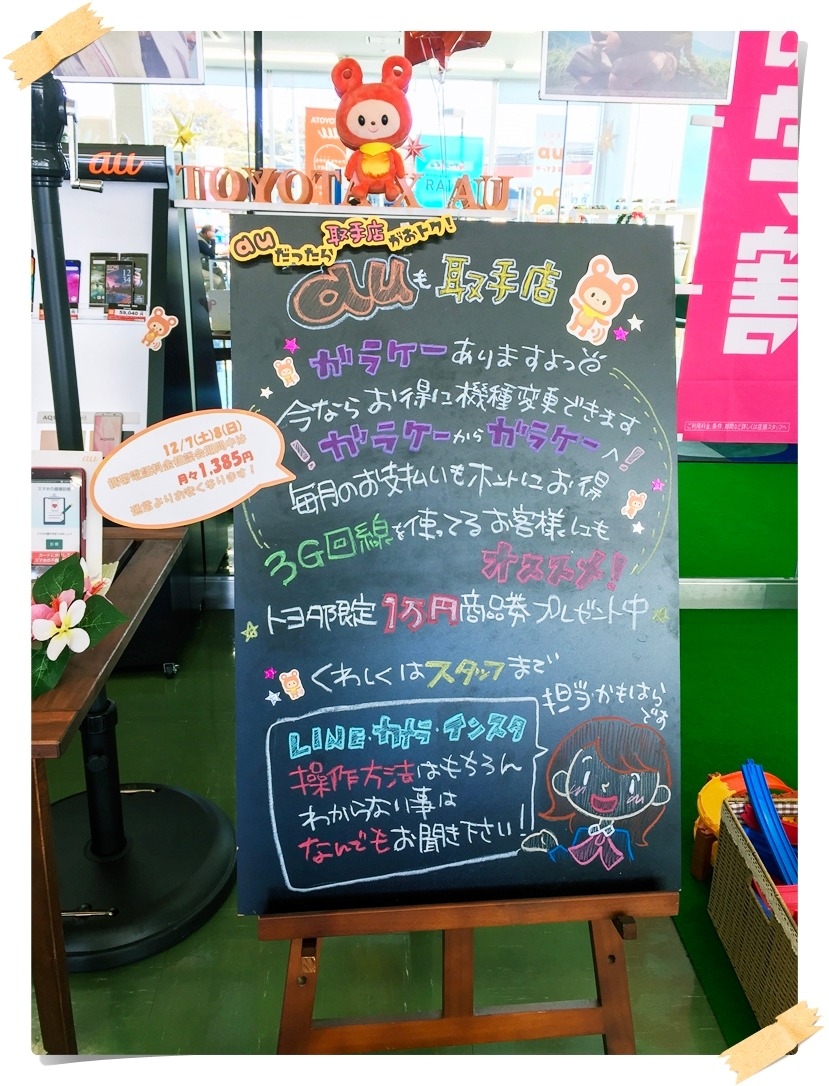 au
TOYOTA X AU
auだったら取手店がおトク!
auも取手店
ガラケーありますよっ
今ならお得に機種変更できます
ガラケーからガラケーへ!
毎月のお支払いもホントにお得
3G回線を使ってるお客様にも
オススメ!
トヨタ限定1万円商品券プレゼント中
くわしくはスタッフまで
担当・かもはら
です
LINE・カメラ・インスタ
操作方法はもちろん
わからない事は
なんでもお聞き下さい!!
12/7(土)8(日)
携帯電話料金相談会期間中は
月々1,385円
通常よりお安くなります!
59,040